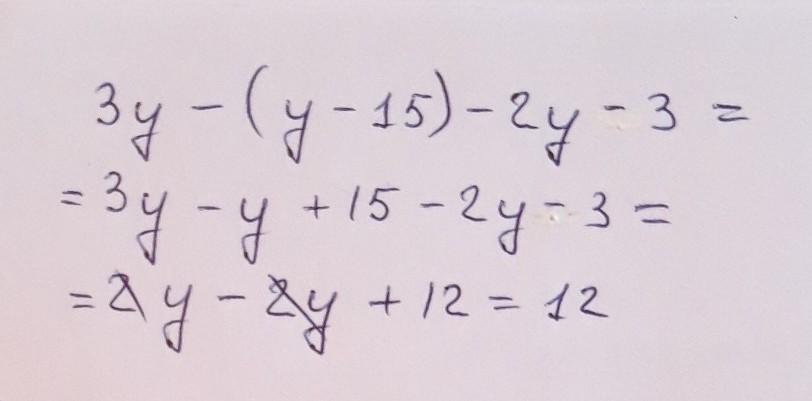 3y - (y - 15) - 2y - 3 =
= 3y - y + 15 - 2y - 3 =
= 2y - 2y + 12 = 12